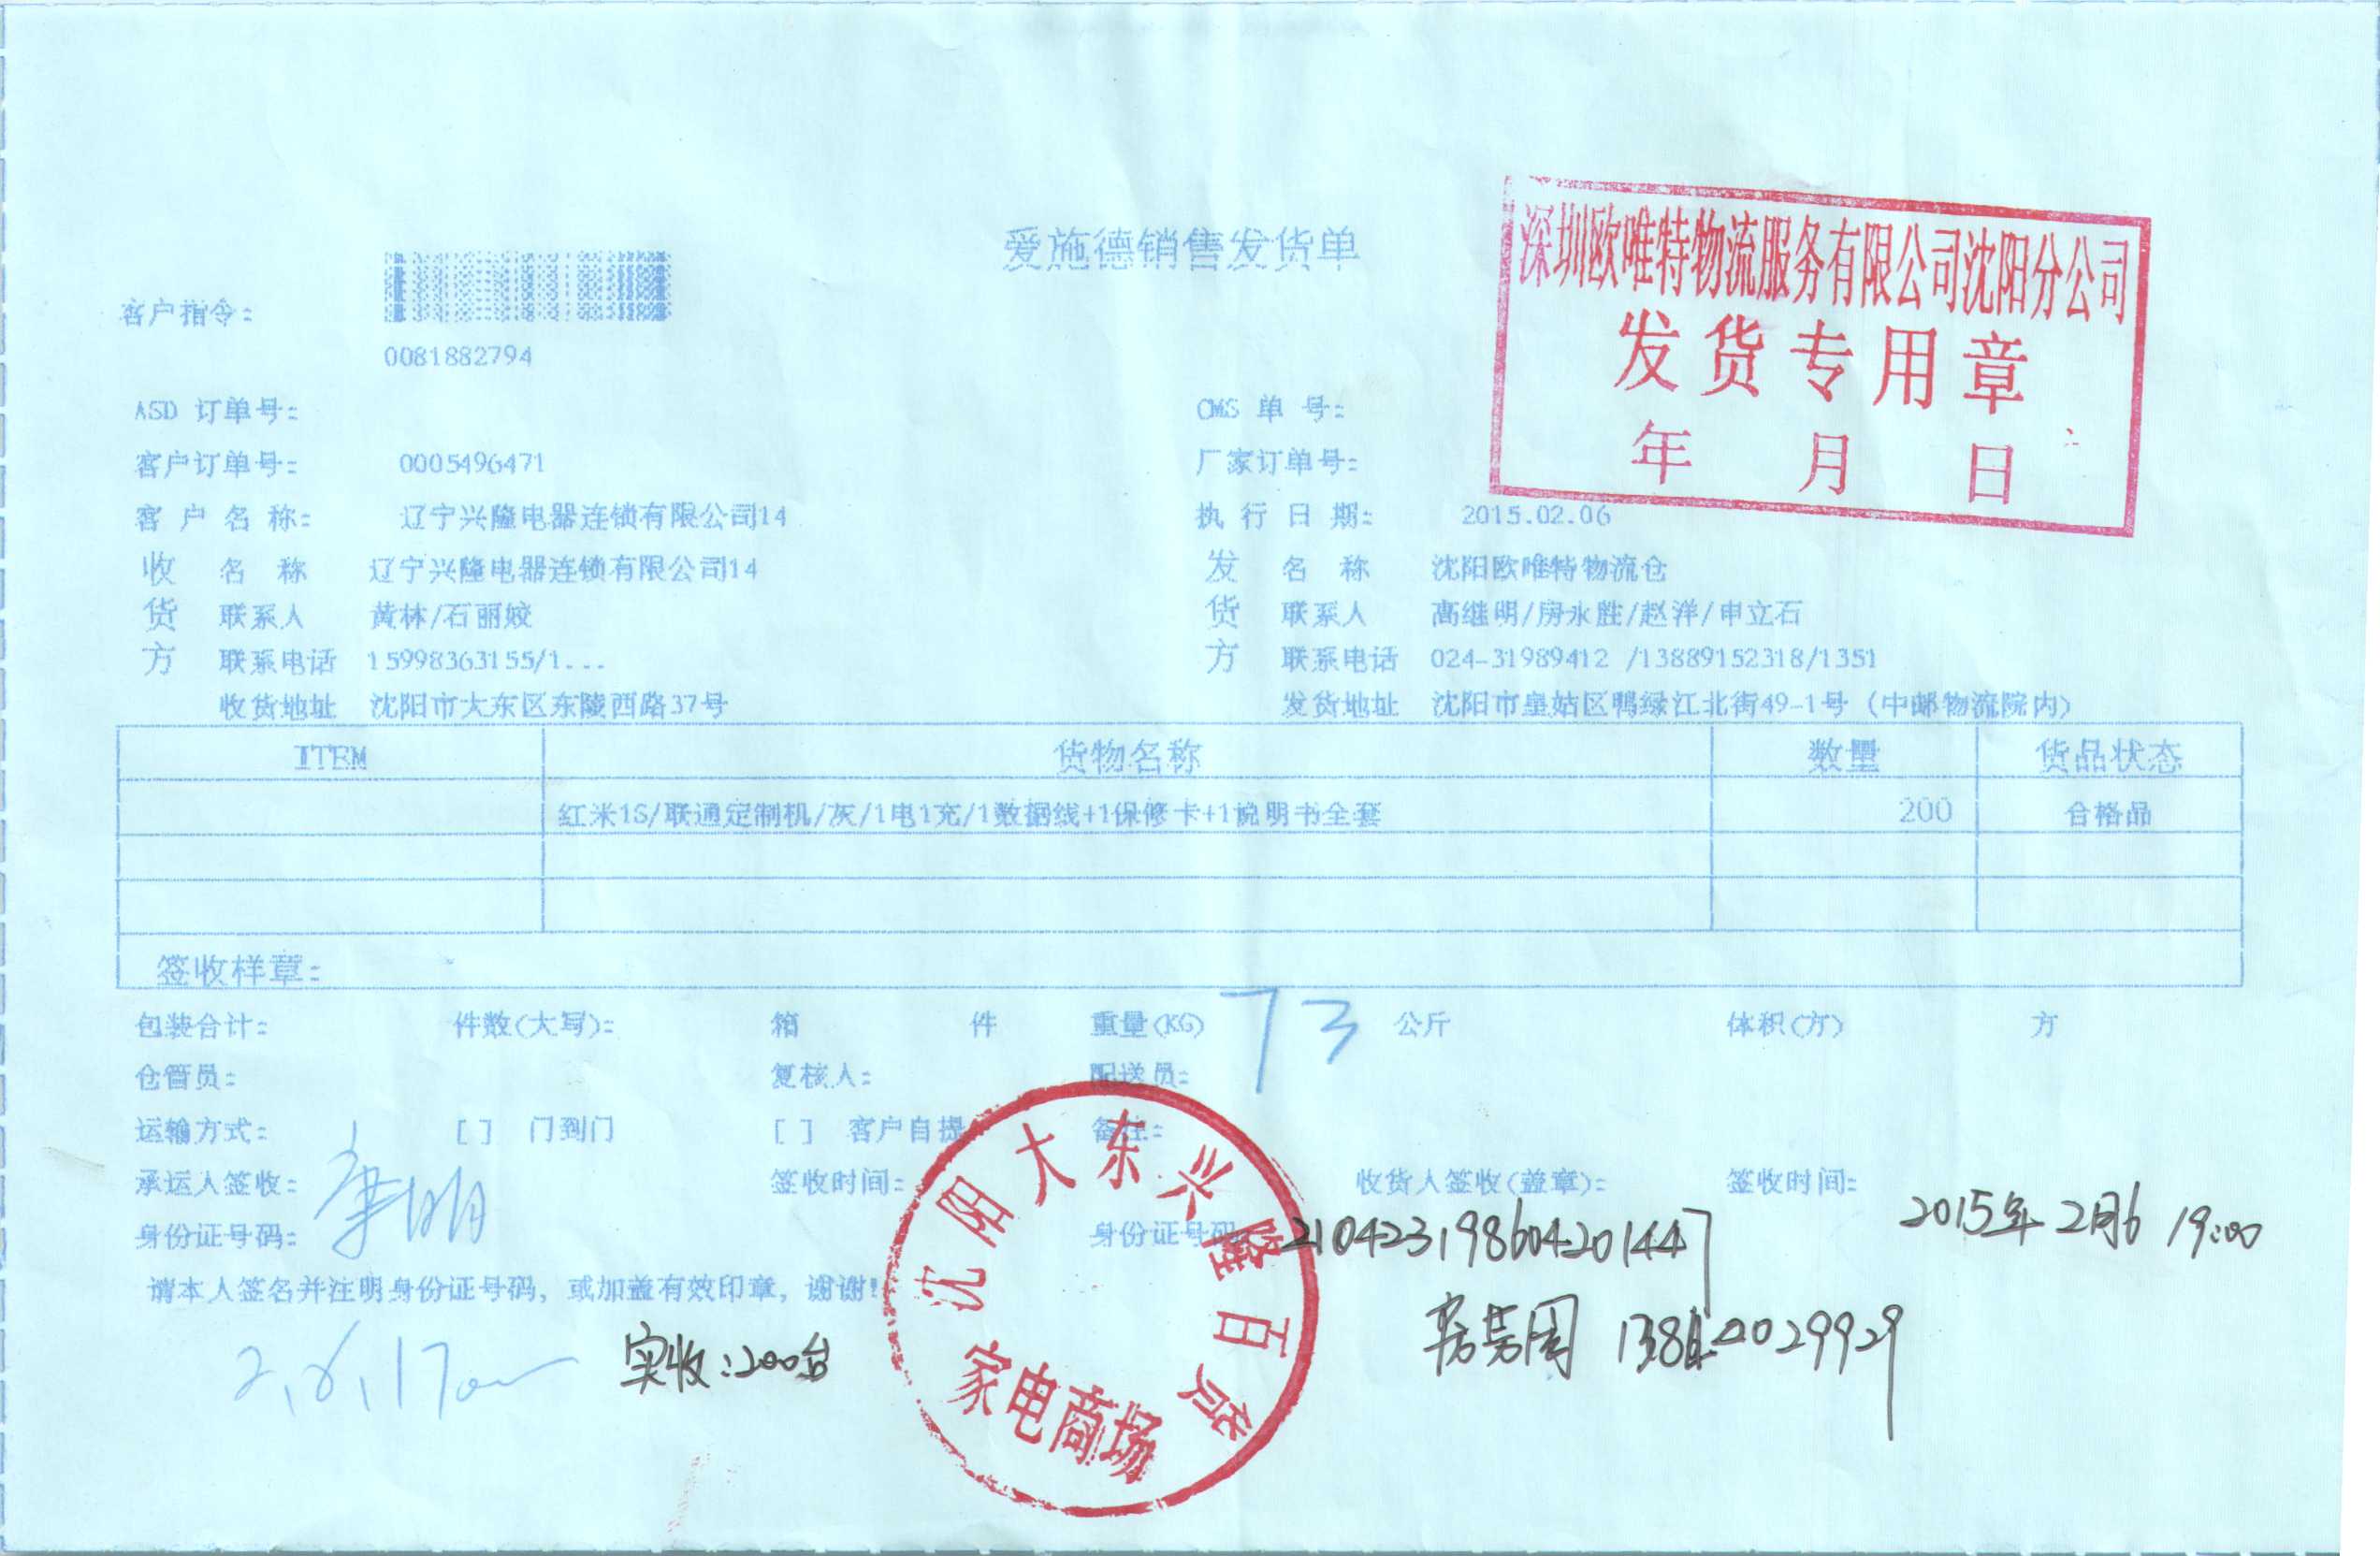 爱施德销售发货单
深圳欧唯特物流服务有限公司沈阳分公司
发货专用章
年 月 日
客户指令:
0081882794
ASD 订单号: CMS 单 号:
客户订单号: 0005496471 厂家订单号:
客 户 名 称: 辽宁兴隆电器连锁有限公司14 执 行 日 期: 2015.02.06
收 名 称 辽宁兴隆电器连锁有限公司14 发 名 称 沈阳欧唯特物流仓
货 联系人 黄林/石丽姣 货 联系人 高继明/房永胜/赵洋/申立石
方 联系电话 15998363155/1... 方 联系电话 024-31989412 /13889152318/1351
收货地址 沈阳市大东区东陵西路37号 发货地址 沈阳市皇姑区鸭绿江北街49-1号 (中邮物流院内)
ITEM 货物名称 数量 货品状态
红米1S/联通定制机/灰/1电1充/1数据线+1保修卡+1说明书全套 200 合格品
签收样章:
包装合计: 件数(大写): 箱 件 重量(KG) 73 公斤 体积(方) 方
仓管员: 复核人: 配送员:
运输方式: [ ] 门到门 [ ] 客户自提 备注:
承运人签收: 签收时间: 收货人签收(盖章): 签收时间: 2015年2月6 19:00
身份证号码: 身份证号码 210423198604201447
请本人签名并注明身份证号码, 或加盖有效印章, 谢谢!
实收:200台
沈阳大东兴隆百货
家电商场